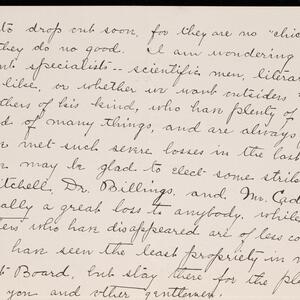 to drop out soon, for they are no "clic
they do no good. I am wondering
nt specialists -- scientific men, literar
like, or whether we want outsiders
thers of his kind, who have plenty of
d of many things, and are always
met such severe losses in the last
may be glad to elect some strik
itchell, Dr. Billings, and, Mr. Cad
ally a great loss to anybody, while
ters who have disappeared are of less co
have seen the least propriety in m
t Board, but stay there for the pl
you and other gentlemen.